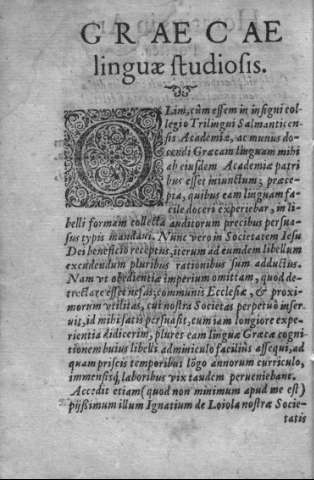 GRAECAE
linguæ studiosis.
OLim, cùm essem in insigni col-
legio Trilingui Salmanticen-
sis Academiæ, ac munus do-
cendi Græcam linguam mihi
ab eiusdem Academiæ patri
bus esset iniunctum; præce-
pta, quibus eam linguam fa-
cilè doceri experiebar, in li-
belli formam collecta auditorum precibus persua-
sus typis mandaui. Nunc verò in Societatem Iesu
Dei beneficio receptus, iterum ad eumdem libellum
excudendum pluribus rationibus sum adductus.
Nam vt obedientiæ imperium omittam, quod de-
trectare esset nefas; communis Ecclesiæ, & proxi-
morum vtilitas, cui nostra Societas perpetuò inser-
uit, id mihi satis persuasit, cum iam longiore expe-
rientia didicerim, plures eam linguæ Græcæ cogni
tionem huius libelli adminiculo facilius assequi, ad
quam priscis temporibus lõgo annorum curriculo,
immensisq́; laboribus vix tandem perueniebant.
Accedit etiam (quod non minimum apud me est)
pijssimum illum Ignatium de Loiola nostræ Socie-
tatis